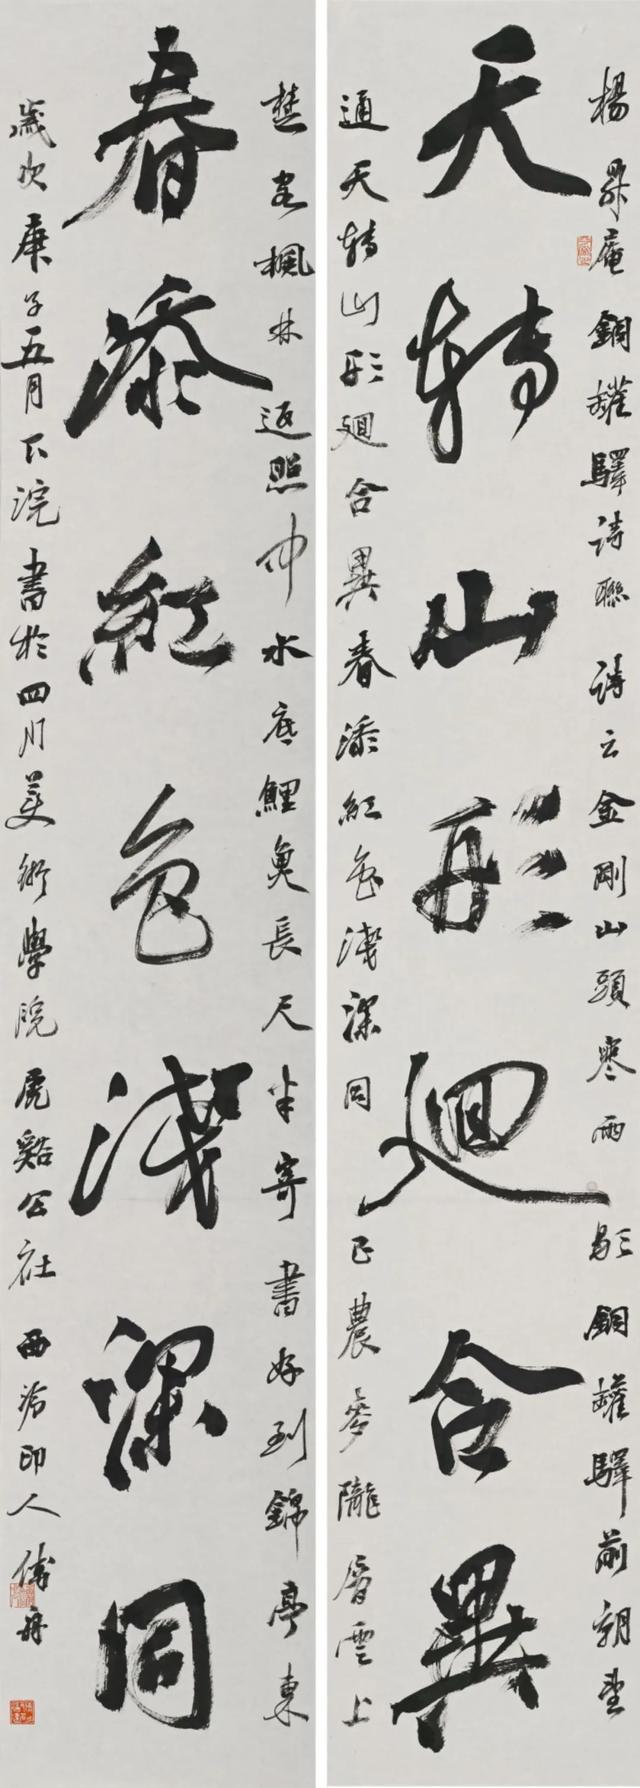 楊升庵銅罐驛詩聯 詩云金剛山頭寒雨歇銅罐驛前朝望
天轉山形廻合異
通天轉山形廻合異春添紅色淺深同巴農麥隴層雲上
楚客楓林返照中水底鯉魚長尺半寄書好到錦亭東
春添紅色淺深同
歲次庚子五月下浣書於四川美術學院虎谿公社西泠印人傅舟